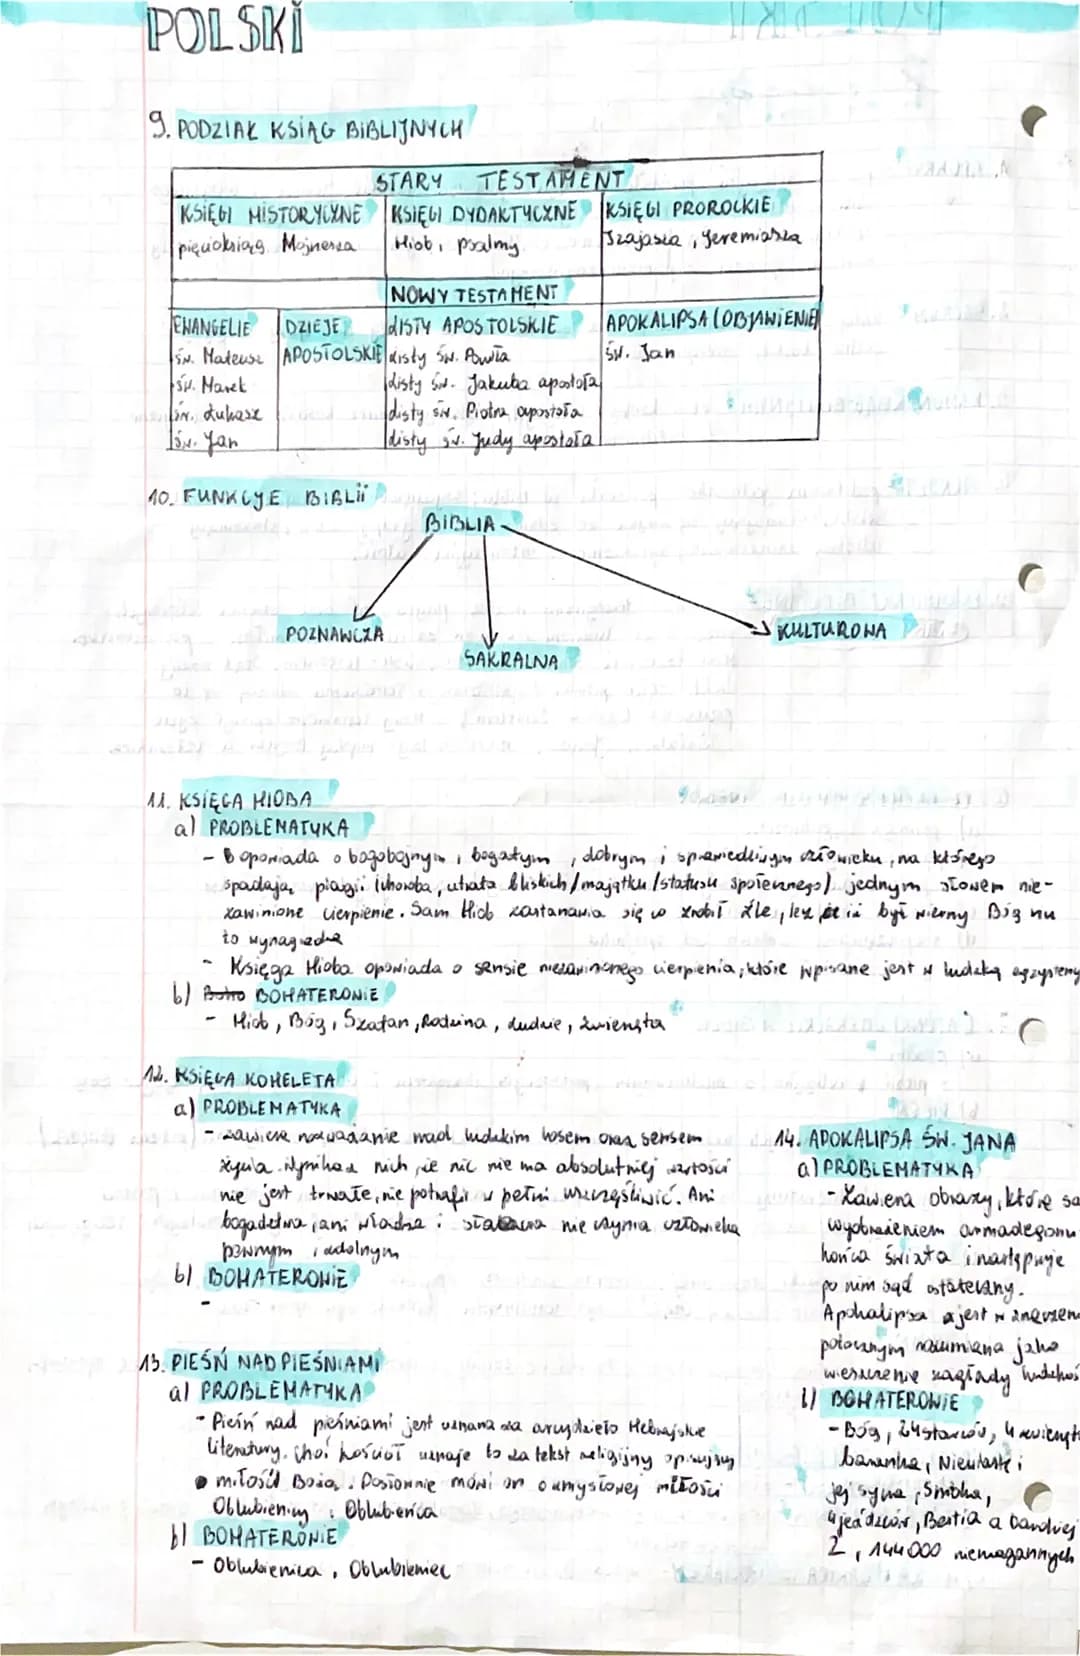 POLSKI
9. PODZIAŁ KSIĄG BIBLIJNYCH
STARY TESTAMENT
KSIĘGI HISTORYCZNE
pięcioksiąg Mojżesza
KSIĘGI DYDAKTYCZNE
Hiob, psalmy
KSIĘGI PROROCKIE
Izajasza, Jeremiasza
NOWY TESTAMENT
EWANGELIE
św. Mateusz
św. Marek
św. Łukasz
św. Jan
DZIEJE
APOSTOLSKIE
LISTY APOSTOLSKIE
Listy św. Pawła
Listy św. Jakuba apostoła
Listy św. Piotra apostoła
Listy św. Judy apostoła
APOKALIPSA (OBJAWIENIE)
św. Jan
10. FUNKCJE BIBLII
BIBLIA
POZNAWCZA
SAKRALNA
KULTUROWA
11. KSIĘGA HIOBA
a) PROBLEMATYKA
- opowiada o bogobojnym, bogatym, dobrym i sprawiedliwym człowieku, na którego
spadają plagi (choroba, utrata bliskich/majątku/statusu społecznego) jednym słowem nie-
zawinione cierpienie. Sam Hiob zastanawia się co zrobił źle, lecz był wierny Bóg mu
to wynagradza
- Księga Hioba opowiada o sensie niezawinionego cierpienia, które wpisane jest w ludzką
b) BOHATEROWIE
- Hiob, Bóg, Szatan, Rodzina, Ludzie, Zwierzęta
12. KSIĘGA KOHELETA
a) PROBLEMATYKA
- zawiera rozważanie nad ludzkim losem oraz sensem
życia. Wynika z nich, że nic nie ma absolutnej wartości
nie jest trwałe, nie potrafi w pełni uszczęśliwić. Ani
bogactwa, ani władza i nie czynią człowieka
pewnym i
b) BOHATEROWIE
-
13. PIEŚŃ NAD PIEŚNIAMI
a) PROBLEMATYKA
- Pieśń nad pieśniami jest uznana za arcydzieło Hebrajskie
literatury. Choć kościół uznaje to za tekst religijny opisujący
miłość Bożą. Dosłownie mówi on o zmysłowej miłości
Oblubienicy i Oblubieńca
b) BOHATEROWIE
- Oblubienica, Oblubieniec
14. APOKALIPSA ŚW. JANA
a) PROBLEMATYKA
- Zawiera obrazy, które są
wyobrażeniem armadegonu
końca świata i następuje
po nim sąd ostateczny.
Apokalipsa jest w
potocznym rozumiana jako
wieszczenie zagłady
b) BOHATEROWIE
- Bóg, 24 starców, 4
baranka, Niewiasta i
jej syna, Smoka,
4 jeźdźców, Bestia a bardziej
2, 144 000 nienagannych